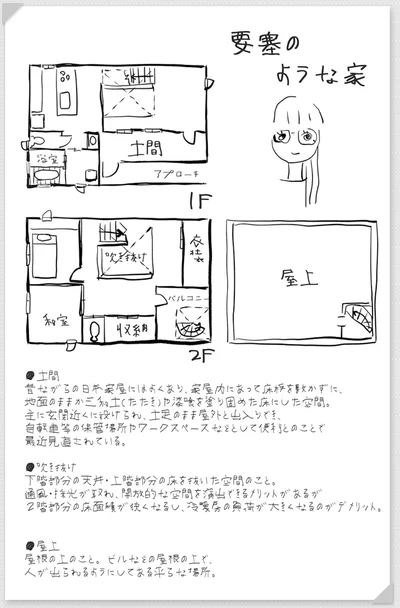 要塞の
ような家
土間
浴室
アプローチ
1F
吹き抜け
衣装
バルコニー
和室
収納
2F
屋上
●土間
昔ながらの日本家屋にはよくあり、家屋内にあって床板を敷かずに、
地面のままか三和土(たたき)や漆喰を塗り固めた床にした空間。
主に玄関近くに設けられ、土足のまま屋外と出入りでき、
自転車等の保管場所やワークスペースなどとして便利とのことで
最近見直されている。
●吹き抜け
下階部分の天井・上階部分の床を抜いた空間のこと。
通風・採光が取れ、開放的な空間を演出できるメリットがあるが
2階部分の床面積が狭くなるし、冷暖房の負荷が大きくなるのがデメリット。
●屋上
屋根の上のこと。ビルなどの屋根の上で、
人が出られるようにしてある平らな場所。